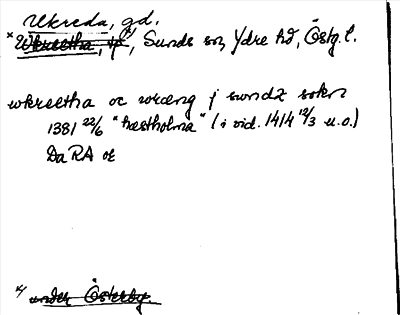 Ukreda, gd.
* Wkreetha, tp *), Sunds sn, Ydre hd, Östg. l.
wkreetha oc wræng j swndz sokn
1381 22/6 "hæstholma" (i vid. 1414 12/3 u.o.)
Da RA or
*) under Österby.